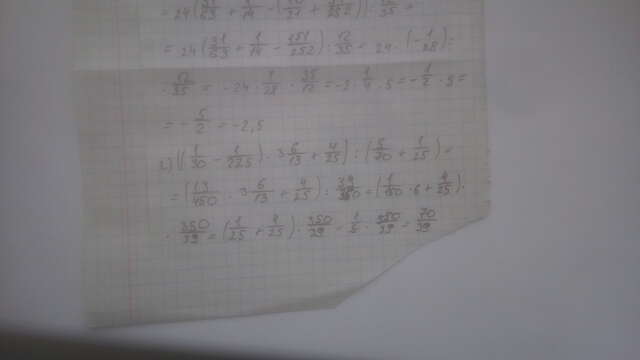 = 24 (31/63 + 1/14 - 151/252) : 12/35 = 24 · (-1/28) :
: 12/35 = -24 · 1/28 · 35/12 = -2 · 1/4 · 5 = -1/2 · 5 =
= -5/2 = -2,5
2) ((1/30 - 1/225) · 3 6/13 + 4/25) : (5/70 + 1/25) =
= (13/450 · 3 6/13 + 4/25) : 39/350 = (1/150 · 6 + 4/25) ·
· 350/39 = (1/25 + 4/25) · 350/39 = 1/5 · 350/39 = 70/39